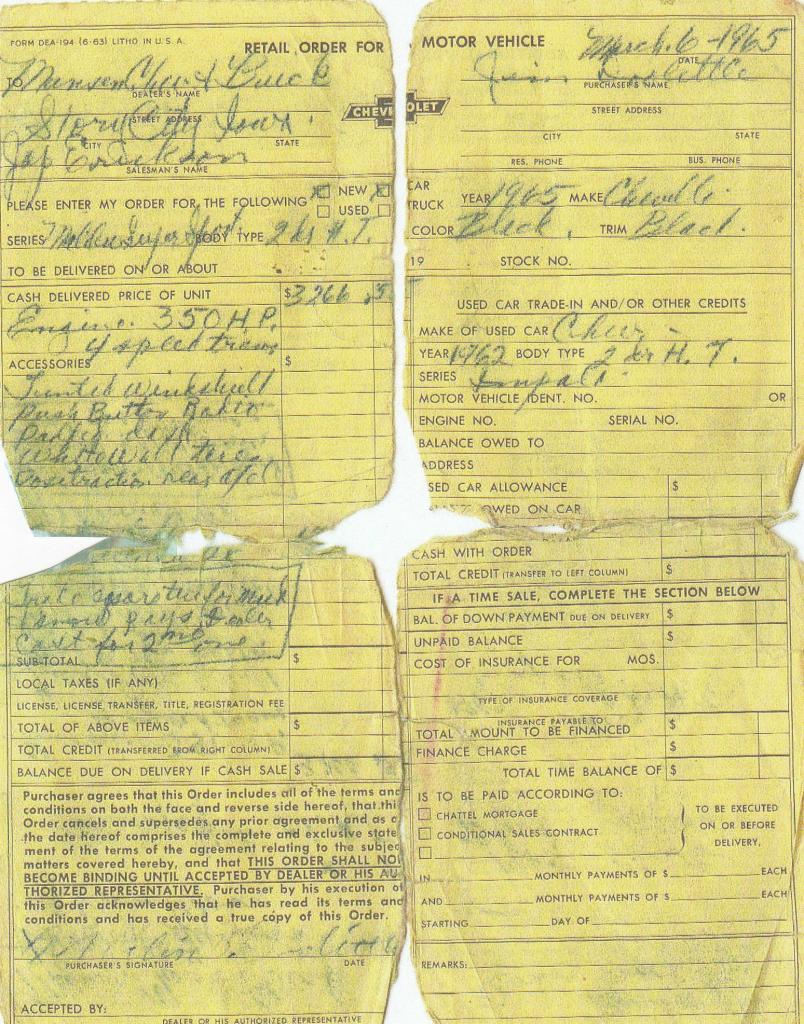 FORM DEA-194 (6-63) LITHO IN U.S.A.
RETAIL ORDER FOR MOTOR VEHICLE
March. 6 - 1965
DATE
TO Chev & Buick
DEALER'S NAME
Jim
PURCHASER'S NAME
Story City Iowa.
STREET ADDRESS
CITY STATE
CHEVROLET
STREET ADDRESS
CITY STATE
Erickson
SALESMAN'S NAME
RES. PHONE BUS. PHONE
PLEASE ENTER MY ORDER FOR THE FOLLOWING NEW USED
CAR
TRUCK
YEAR 1965 MAKE Chevelle
SERIES Malibu Super Sport BODY TYPE 2 dr H.T.
COLOR Black. TRIM Black.
TO BE DELIVERED ON OR ABOUT
19 STOCK NO.
CASH DELIVERED PRICE OF UNIT $3266.5
Engine. 350 H.P.
4 speed trans
ACCESSORIES $
Tinted Windshield
Push Button Radio
Padded dash
Whitewall tires
Positraction rear a/c
USED CAR TRADE-IN AND/OR OTHER CREDITS
MAKE OF USED CAR Chev -
YEAR 1962 BODY TYPE 2 dr H.T.
SERIES Impala
MOTOR VEHICLE IDENT. NO. OR
ENGINE NO. SERIAL NO.
BALANCE OWED TO
ADDRESS
USED CAR ALLOWANCE $
OWED ON CAR
pays Dealer
Cost for 2nd one.
SUB-TOTAL $
LOCAL TAXES (IF ANY)
LICENSE, LICENSE TRANSFER, TITLE, REGISTRATION FEE
TOTAL OF ABOVE ITEMS $
TOTAL CREDIT (TRANSFERRED FROM RIGHT COLUMN)
BALANCE DUE ON DELIVERY IF CASH SALE $
Purchaser agrees that this Order includes all of the terms and
conditions on both the face and reverse side hereof, that thi
Order cancels and supersedes any prior agreement and as o
the date hereof comprises the complete and exclusive state
ment of the terms of the agreement relating to the subjec
matters covered hereby, and that THIS ORDER SHALL NO
BECOME BINDING UNTIL ACCEPTED BY DEALER OR HIS AU
THORIZED REPRESENTATIVE. Purchaser by his execution of
this Order acknowledges that he has read its terms and
conditions and has received a true copy of this Order.
PURCHASER'S SIGNATURE DATE
ACCEPTED BY:
DEALER OR HIS AUTHORIZED REPRESENTATIVE
CASH WITH ORDER
TOTAL CREDIT (TRANSFER TO LEFT COLUMN) $
IF A TIME SALE, COMPLETE THE SECTION BELOW
BAL. OF DOWN PAYMENT DUE ON DELIVERY $
UNPAID BALANCE $
COST OF INSURANCE FOR MOS.
TYPE OF INSURANCE COVERAGE
INSURANCE PAYABLE TO
TOTAL AMOUNT TO BE FINANCED $
FINANCE CHARGE $
TOTAL TIME BALANCE OF $
IS TO BE PAID ACCORDING TO:
CHATTEL MORTGAGE
CONDITIONAL SALES CONTRACT
TO BE EXECUTED
ON OR BEFORE
DELIVERY,
IN MONTHLY PAYMENTS OF $ EACH
AND MONTHLY PAYMENTS OF $ EACH
STARTING DAY OF
REMARKS: